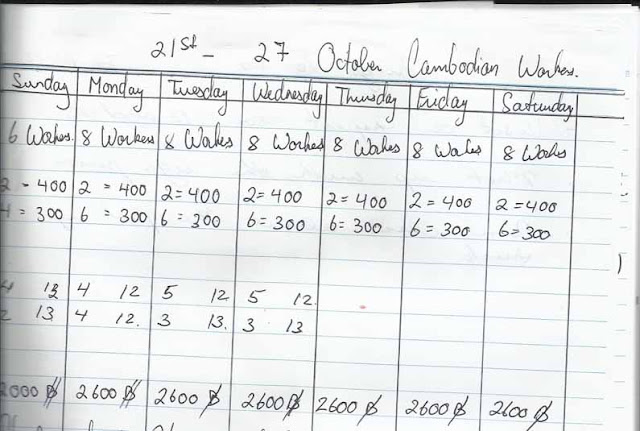 21st - 27 October Cambodian Workers.
Sunday Monday Tuesday Wednesday Thursday Friday Saturday
6 Workers. 8 Workers 8 Workers 8 Workers 8 Workers 8 Workers 8 Workers
2 = 400 2 = 400 2 = 400 2 = 400 2 = 400 2 = 400 2 = 400
4 = 300 6 = 300 6 = 300 6 = 300 6 = 300 6 = 300 6 = 300
4 12 4 12 5 12 5 12.
2 13 4 12. 3 13. 3 13
2000 ฿ 2600 ฿ 2600 ฿ 2600 ฿ 2600 ฿ 2600 ฿ 2600 ฿